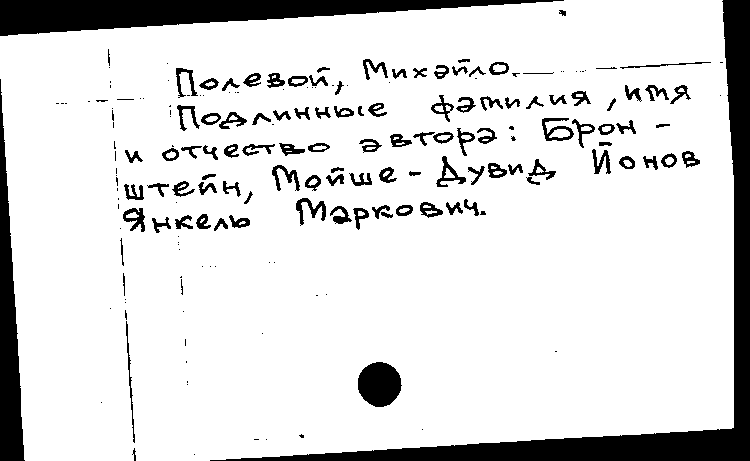 Полевой, Михайло.
Подлинные фамилия, имя
и отчество автора: Брон-
штейн, Мойше-Дувид Йонов
Янкель Маркович.